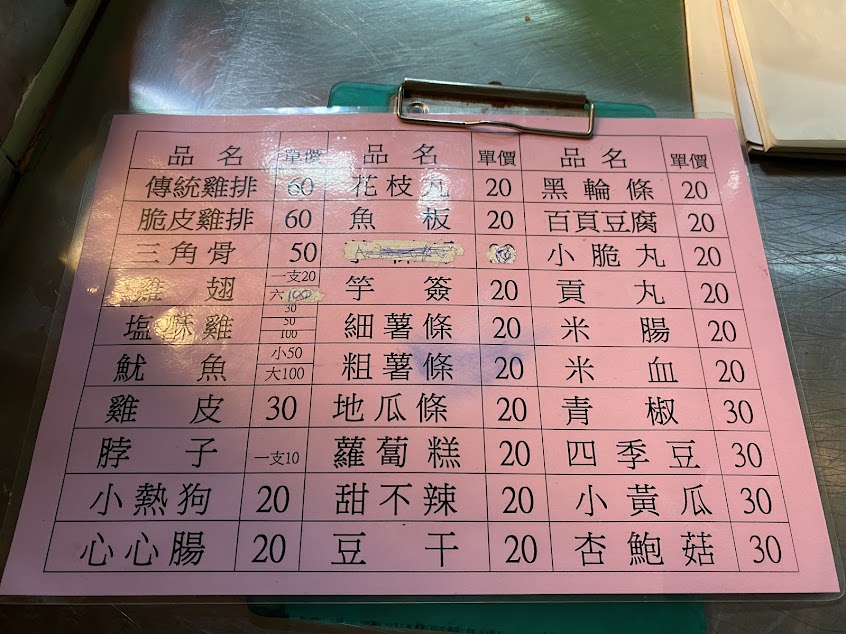 品名 單價 品名 單價 品名 單價
傳統雞排 60 花枝丸 20 黑輪條 20
脆皮雞排 60 魚板 20 百頁豆腐 20
三角骨 50 小脆丸 20
雞翅 一支20 六100 竽簽 20 頁丸 20
塩酥雞 30 50 100 細薯條 20 米腸 20
魷魚 小50 大100 粗薯條 20 米血 20
雞皮 30 地瓜條 20 青椒 30
脖子 一支10 蘿蔔糕 20 四季豆 30
小熱狗 20 甜不辣 20 小黃瓜 30
心心腸 20 豆干 20 杏鮑菇 30